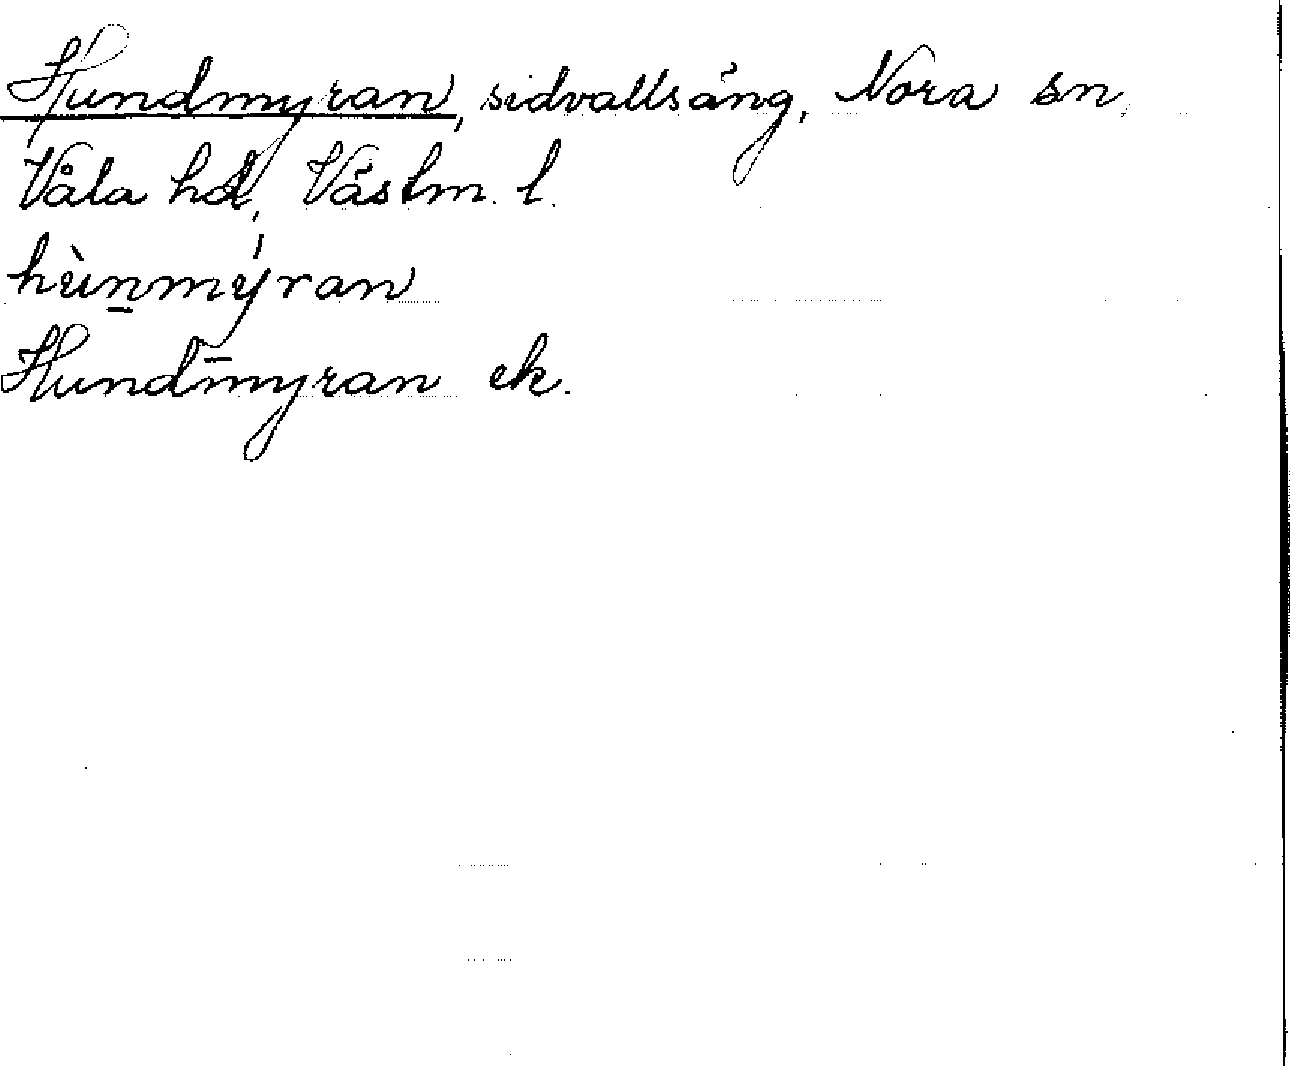 Hundmyran, sidvallsäng, Nora sn,
Våla hd, Västm. l.
hùn̲mýran
Hundmyran ek.